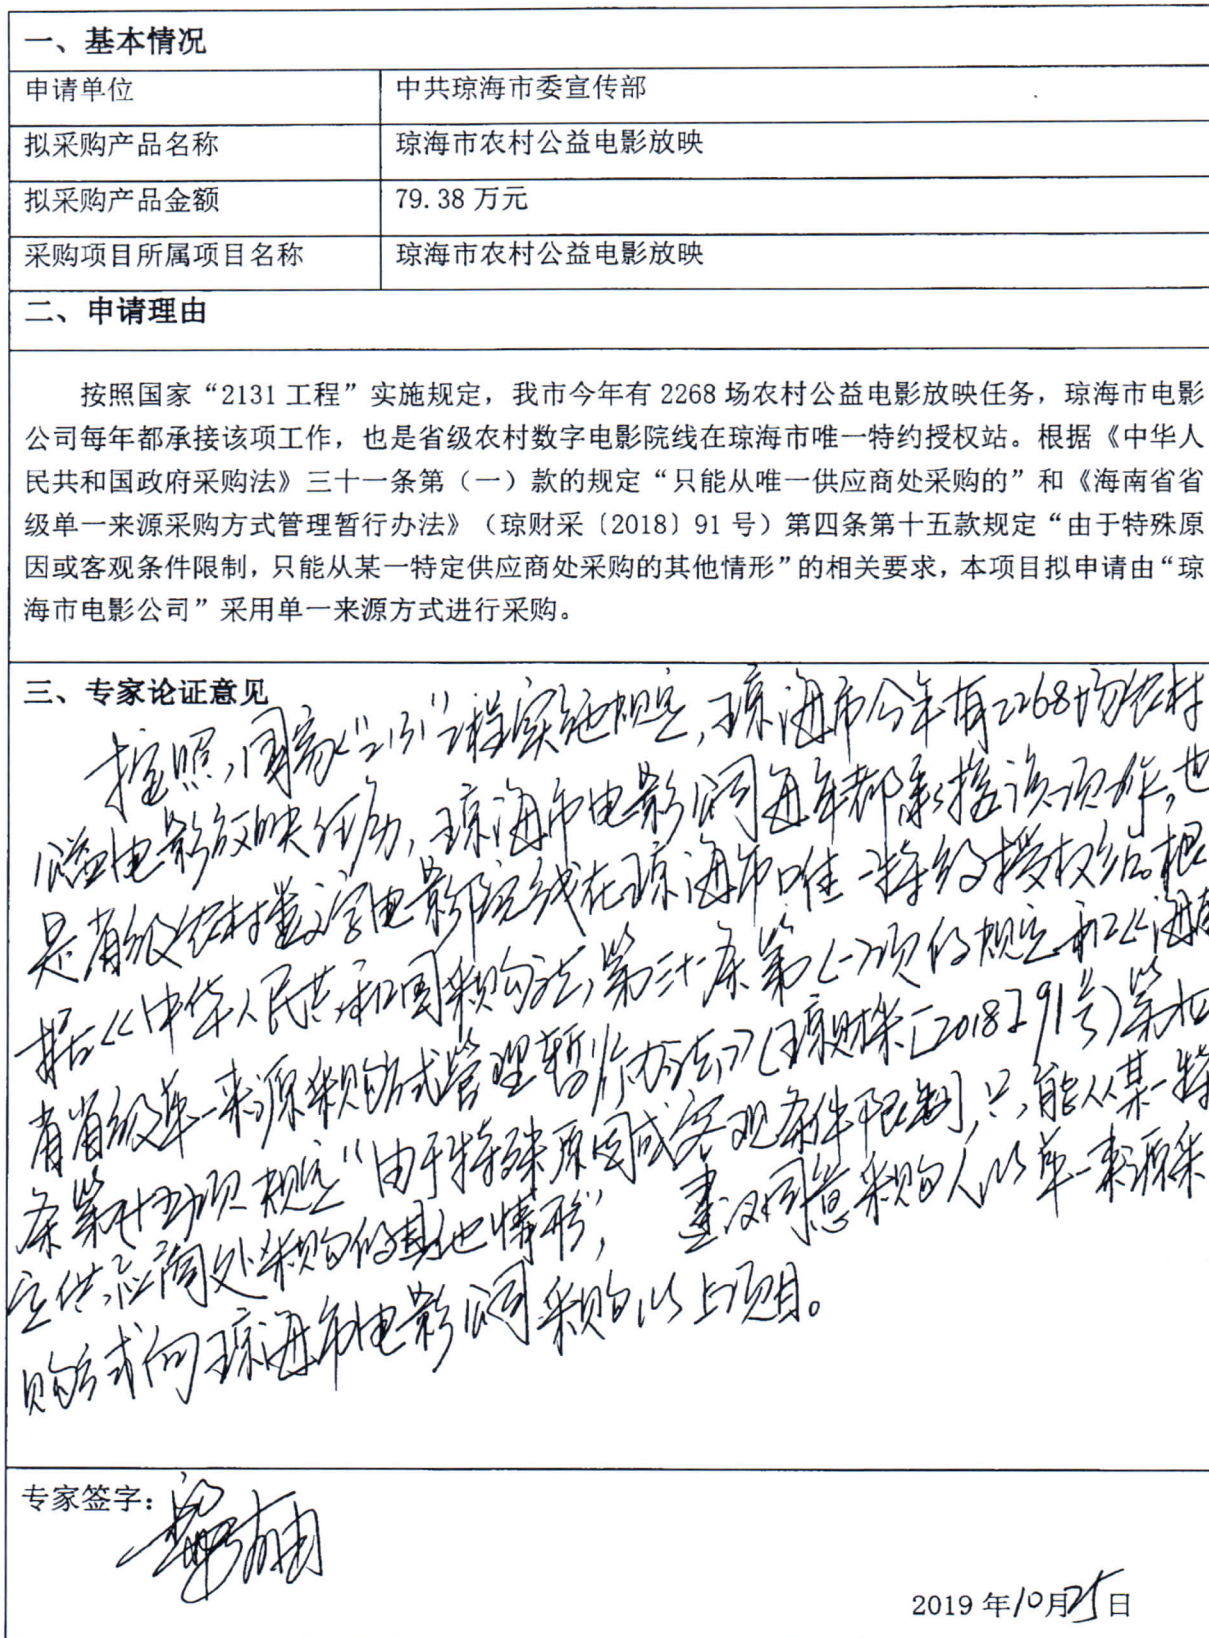 一、基本情况
申请单位 中共琼海市委宣传部
拟采购产品名称 琼海市农村公益电影放映
拟采购产品金额 79.38 万元
采购项目所属项目名称 琼海市农村公益电影放映
二、申请理由
按照国家“2131 工程”实施规定，我市今年有 2268 场农村公益电影放映任务，琼海市电影
公司每年都承接该项工作，也是省级农村数字电影院线在琼海市唯一特约授权站。根据《中华人
民共和国政府采购法》三十一条第（一）款的规定“只能从唯一供应商处采购的”和《海南省省
级单一来源采购方式管理暂行办法》（琼财采〔2018〕91 号）第四条第十五款规定“由于特殊原
因或客观条件限制，只能从某一特定供应商处采购的其他情形”的相关要求，本项目拟申请由“琼
海市电影公司”采用单一来源方式进行采购。
三、专家论证意见
按照，国家“2131”工程实施规定，琼海市今年有2268场农村
公益电影放映任务，琼海市电影公司每年都承接该项工作，也
是省级农村数字电影院线在琼海市唯一特约授权站。根
据《中华人民共和国采购法》第三十一条第(一)项的规定和《海南
省省级单一来源采购方式管理暂行办法》(琼财采[2018]91号)第四
条第十五项规定“由于特殊原因或客观条件限制，只能从某一特
定供应商处采购的其他情形”，建议同意采购人以单一来源采
购方式向琼海市电影公司采购以上项目。
专家签字：
2019 年10月25日